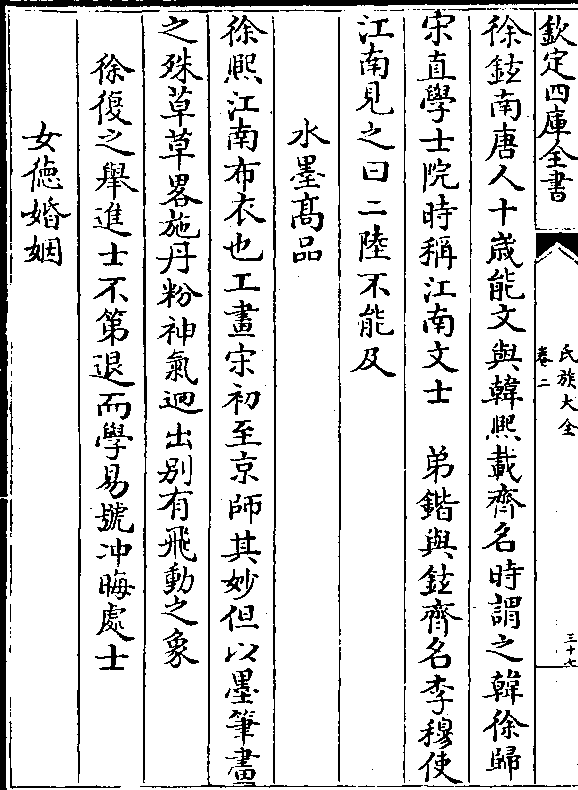 欽定四庫全書
氏族大全
卷二
三十七
徐鉉南唐人十歲能文與韓熙載齊名時謂之韓徐歸
宋直學士院時稱江南文士　弟鍇與鉉齊名李穆使
江南見之曰二陸不能及
水墨髙品
徐熙江南布衣也工畫宋初至京師其妙但以墨筆畫
之殊草草畧施丹粉神氣迥出别有飛動之象
徐復之舉進士不第退而學易號冲晦處士
女徳婚姻